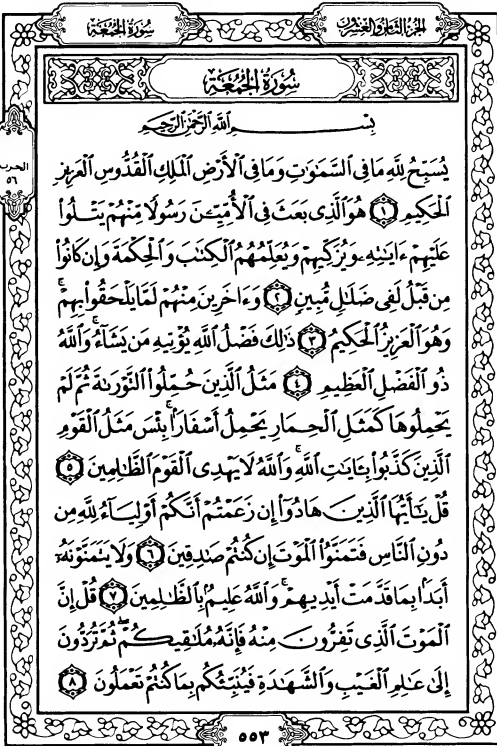 سُورَةُ الجُمُعَةِ
الجُزْءُ الثَّامِنُ وَالعِشْرُونَ
سُورَةُ الجُمُعَةِ
بِسْمِ اللَّهِ الرَّحْمَٰنِ الرَّحِيمِ
الحزب
٥٦
يُسَبِّحُ لِلَّهِ مَا فِى السَّمَٰوَٰتِ وَمَا فِى الْأَرْضِ الْمَلِكِ الْقُدُّوسِ الْعَزِيزِ
الْحَكِيمِ ١ هُوَ الَّذِى بَعَثَ فِى الْأُمِّيِّـۧنَ رَسُولًا مِّنْهُمْ يَتْلُوا۟
عَلَيْهِمْ ءَايَٰتِهِۦ وَيُزَكِّيهِمْ وَيُعَلِّمُهُمُ الْكِتَٰبَ وَالْحِكْمَةَ وَإِن كَانُوا۟
مِن قَبْلُ لَفِى ضَلَٰلٍ مُّبِينٍ ٢ وَءَاخَرِينَ مِنْهُمْ لَمَّا يَلْحَقُوا۟ بِهِمْ ۚ
وَهُوَ الْعَزِيزُ الْحَكِيمُ ٣ ذَٰلِكَ فَضْلُ اللَّهِ يُؤْتِيهِ مَن يَشَآءُ ۚ وَاللَّهُ
ذُو الْفَضْلِ الْعَظِيمِ ٤ مَثَلُ الَّذِينَ حُمِّلُوا۟ التَّوْرَىٰةَ ثُمَّ لَمْ
يَحْمِلُوهَا كَمَثَلِ الْحِمَارِ يَحْمِلُ أَسْفَارًۢا ۚ بِئْسَ مَثَلُ الْقَوْمِ
الَّذِينَ كَذَّبُوا۟ بِـَٔايَٰتِ اللَّهِ ۚ وَاللَّهُ لَا يَهْدِى الْقَوْمَ الظَّٰلِمِينَ ٥
قُلْ يَٰٓأَيُّهَا الَّذِينَ هَادُوٓا۟ إِن زَعَمْتُمْ أَنَّكُمْ أَوْلِيَآءُ لِلَّهِ مِن
دُونِ النَّاسِ فَتَمَنَّوُا۟ الْمَوْتَ إِن كُنتُمْ صَٰدِقِينَ ٦ وَلَا يَتَمَنَّوْنَهُۥٓ
أَبَدًۢا بِمَا قَدَّمَتْ أَيْدِيهِمْ ۚ وَاللَّهُ عَلِيمٌۢ بِالظَّٰلِمِينَ ٧ قُلْ إِنَّ
الْمَوْتَ الَّذِى تَفِرُّونَ مِنْهُ فَإِنَّهُۥ مُلَٰقِيكُمْ ۖ ثُمَّ تُرَدُّونَ
إِلَىٰ عَٰلِمِ الْغَيْبِ وَالشَّهَٰدَةِ فَيُنَبِّئُكُم بِمَا كُنتُمْ تَعْمَلُونَ ٨
٥٥٣